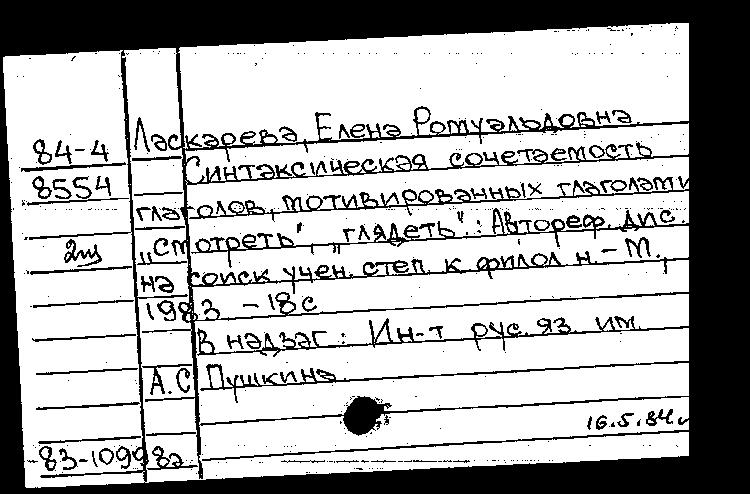 84-4
8554
2 экз
Ласкарева, Елена Ромуальдовна.
Синтаксическая сочетаемость
глаголов, мотивированных глаголами
„смотреть", „глядеть".: Автореф. дис.
на соиск учен. степ. к филол н. – М.,
1983 – 18 с
В надзаг: Ин-т рус. яз. им.
А.С Пушкина.
16.5.84г
83-10998а